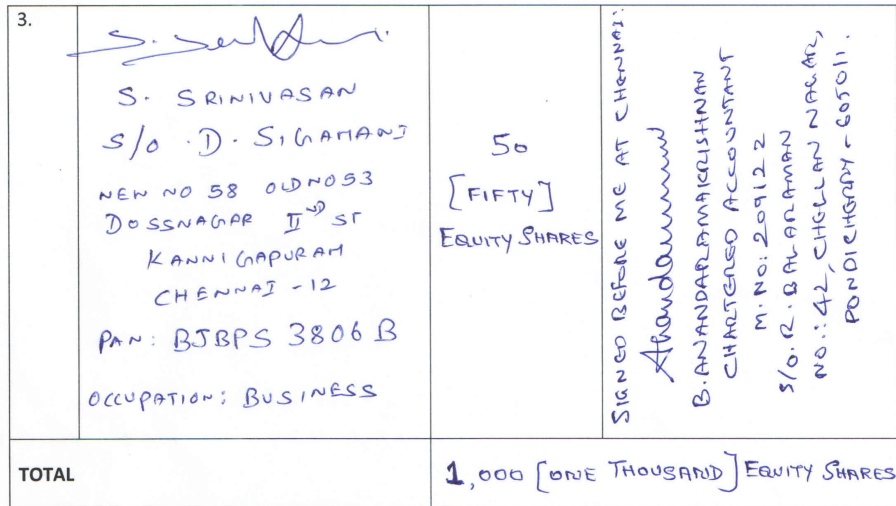 3.
S. SRINIVASAN
S/O . D. SIGAMANI
NEW NO 58 OLD NO 53
DOSSNAGAR IIND ST
KANNIGAPURAM
CHENNAI - 12
PAN: BJBPS 3806 B
OCCUPATION: BUSINESS
50
[FIFTY]
EQUITY SHARES
SIGNED BEFORE ME AT CHENNAI:
B. ANANDARAMAKRISHNAN
CHARTERED ACCOUNTANT
M. NO: 209122
S/O. R. BALARAMAN
NO.: 42, CHELLAN NAGAR,
PONDICHERRY - 605011.
TOTAL
1,000 [ONE THOUSAND] EQUITY SHARES